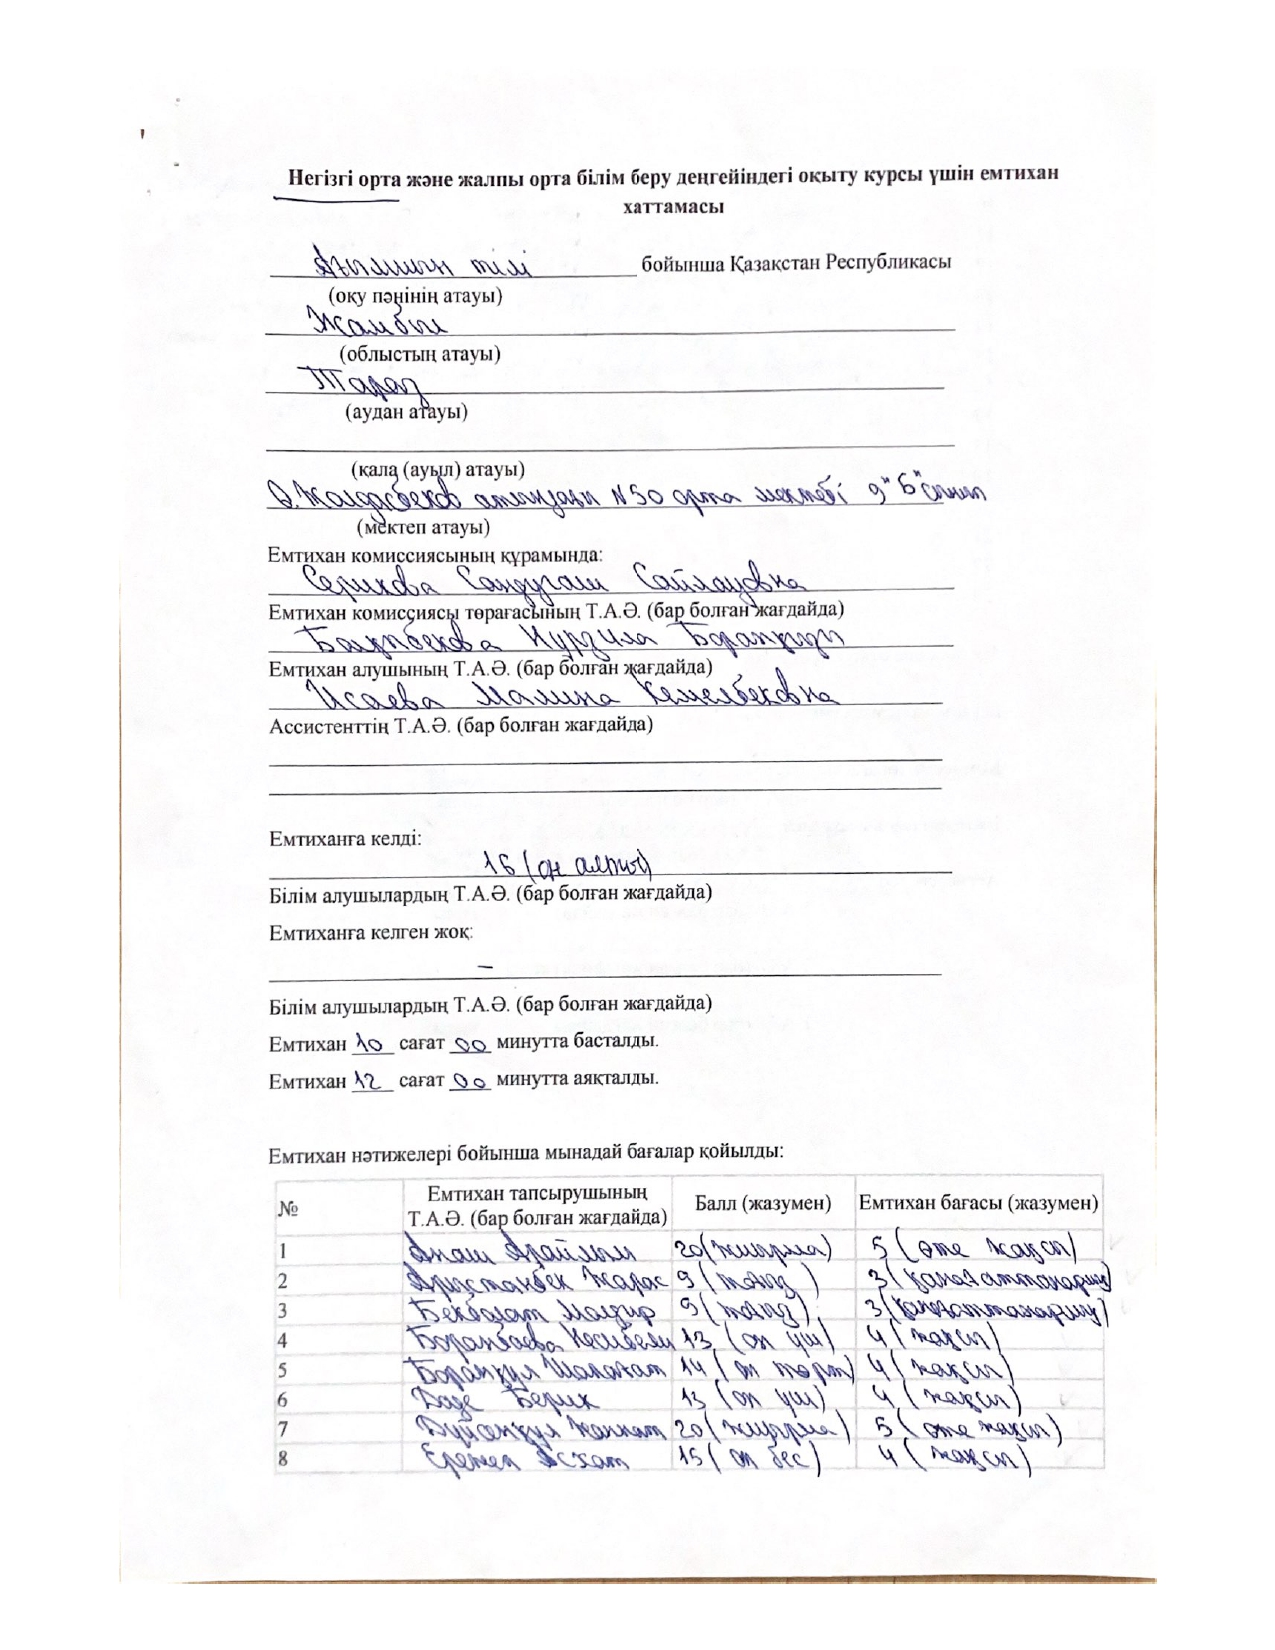 Негізгі орта және жалпы орта білім беру деңгейіндегі оқыту курсы үшін емтихан
хаттамасы
Ағылшын тілі бойынша Қазақстан Республикасы
(оқу пәнінің атауы)
Жамбыл
(облыстың атауы)
Тараз
(аудан атауы)
(қала (ауыл) атауы)
Ө.Жолдасбеков атындағы №50 орта мектебі 9 "Б" сынып
(мектеп атауы)
Емтихан комиссиясының құрамында:
Серикова Сандугаш Сайлаувовна
Емтихан комиссиясы төрағасының Т.А.Ә. (бар болған жағдайда)
Нурзила
Емтихан алушының Т.А.Ә. (бар болған жағдайда)
Исаева Малина Кемелбековна
Ассистенттің Т.А.Ә. (бар болған жағдайда)
Емтиханға келді:
16 (он алты)
Білім алушылардың Т.А.Ә. (бар болған жағдайда)
Емтиханға келген жоқ:
–
Білім алушылардың Т.А.Ә. (бар болған жағдайда)
Емтихан 10 сағат 00 минутта басталды.
Емтихан 12 сағат 00 минутта аяқталды.
Емтихан нәтижелері бойынша мынадай бағалар қойылды:
№ Емтихан тапсырушының Т.А.Ә. (бар болған жағдайда) Балл (жазумен) Емтихан бағасы (жазумен)
1 Арайлым 20 (жиырма) 5 (өте жақсы)
2 Арыстанбек Жарас 9 (тоғыз) 3 (қанағаттанарлық)
3 Бекболат Мадияр 9 (тоғыз) 3 (қанағаттанарлық)
4 Боранбаева 13 (он үш) 4 (жақсы)
5 Боранқул 14 (он төрт) 4 (жақсы)
6 Берик 13 (он үш) 4 (жақсы)
7 Жаннат 20 (жиырма) 5 (өте жақсы)
8 Ережеп Асхат 15 (он бес) 4 (жақсы)